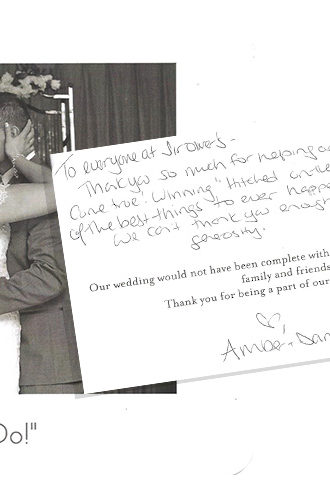 To everyone at Sirowers -
Thank you so much for helping o
come true! Winning "Hitched on the
of the best things to ever happ
we can't thank you enoug
generosity.
Our wedding would not have been complete with
family and friends
Thank you for being a part of our
Amber + Dan
Do!"